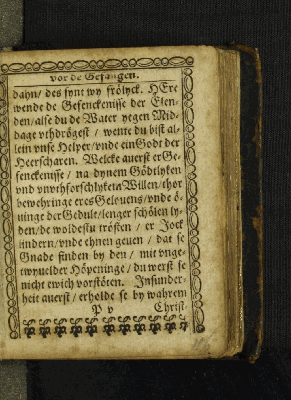 vor de Gefangen.
dahn/ des synt wy frölyck. HEre
wende de Gefenckenisse der Elen-
den/ alse du de Water yegen Mid-
dage vthdrögest / wente du bist al-
lein vnse Helper/ vnde ein Godt der
Heerscharen. Welcke auerst er Ge-
fenckenisse / na dynem Gödtlyken
vnd vnuthforschlyken Willen/ thor
bewehringe eres Gelouens/ vnde ö-
ninge der Gedult/ lenger schölen ly-
den/ de woldestu trösten / er Jock
lindern/ vnde ehnen geuen / dat se
Gnade finden by den / mit vnge-
twyuelder Höpeninge / du werst se
nicht ewich vorstöten. Insunder-
heit auerst / erholde se by wahrem
P v Christ-